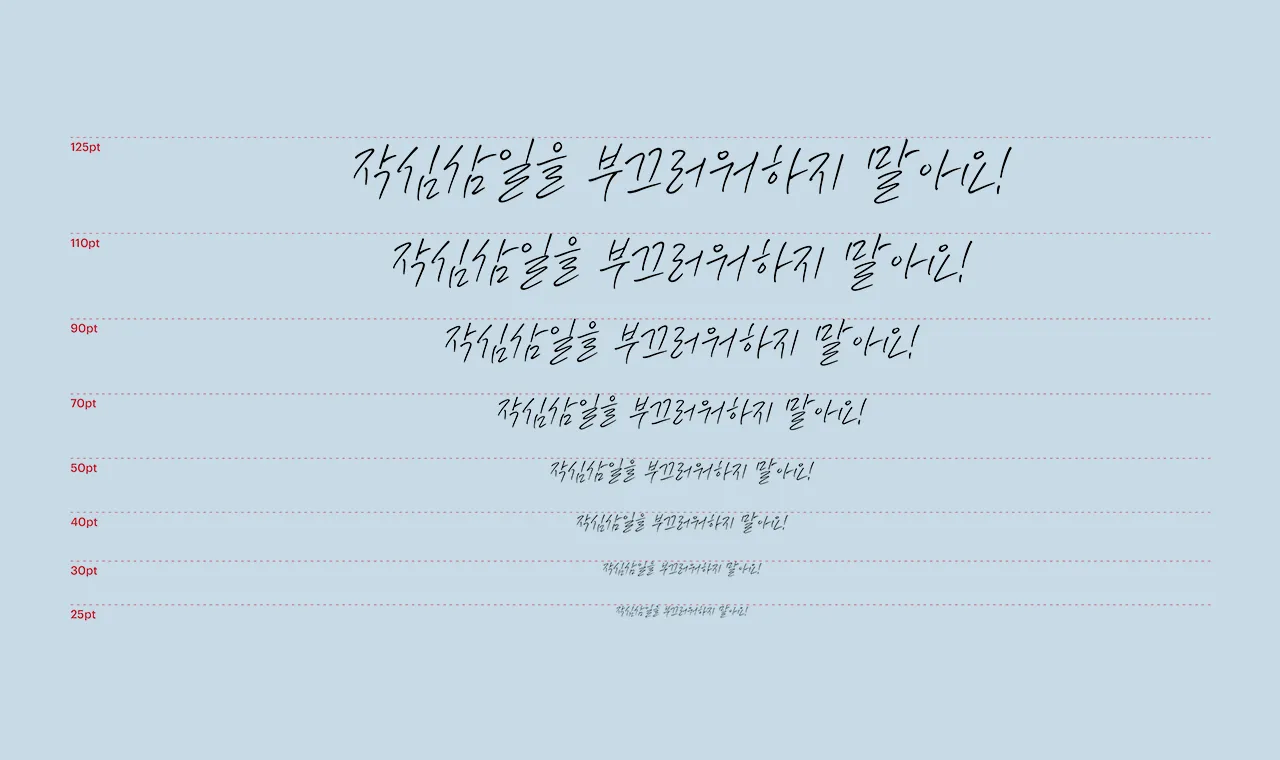 125pt
작심삼일을 부끄러워하지 말아요!
110pt
작심삼일을 부끄러워하지 말아요!
90pt
작심삼일을 부끄러워하지 말아요!
70pt
작심삼일을 부끄러워하지 말아요!
50pt
작심삼일을 부끄러워하지 말아요!
40pt
작심삼일을 부끄러워하지 말아요!
30pt
작심삼일을 부끄러워하지 말아요!
25pt
작심삼일을 부끄러워하지 말아요!